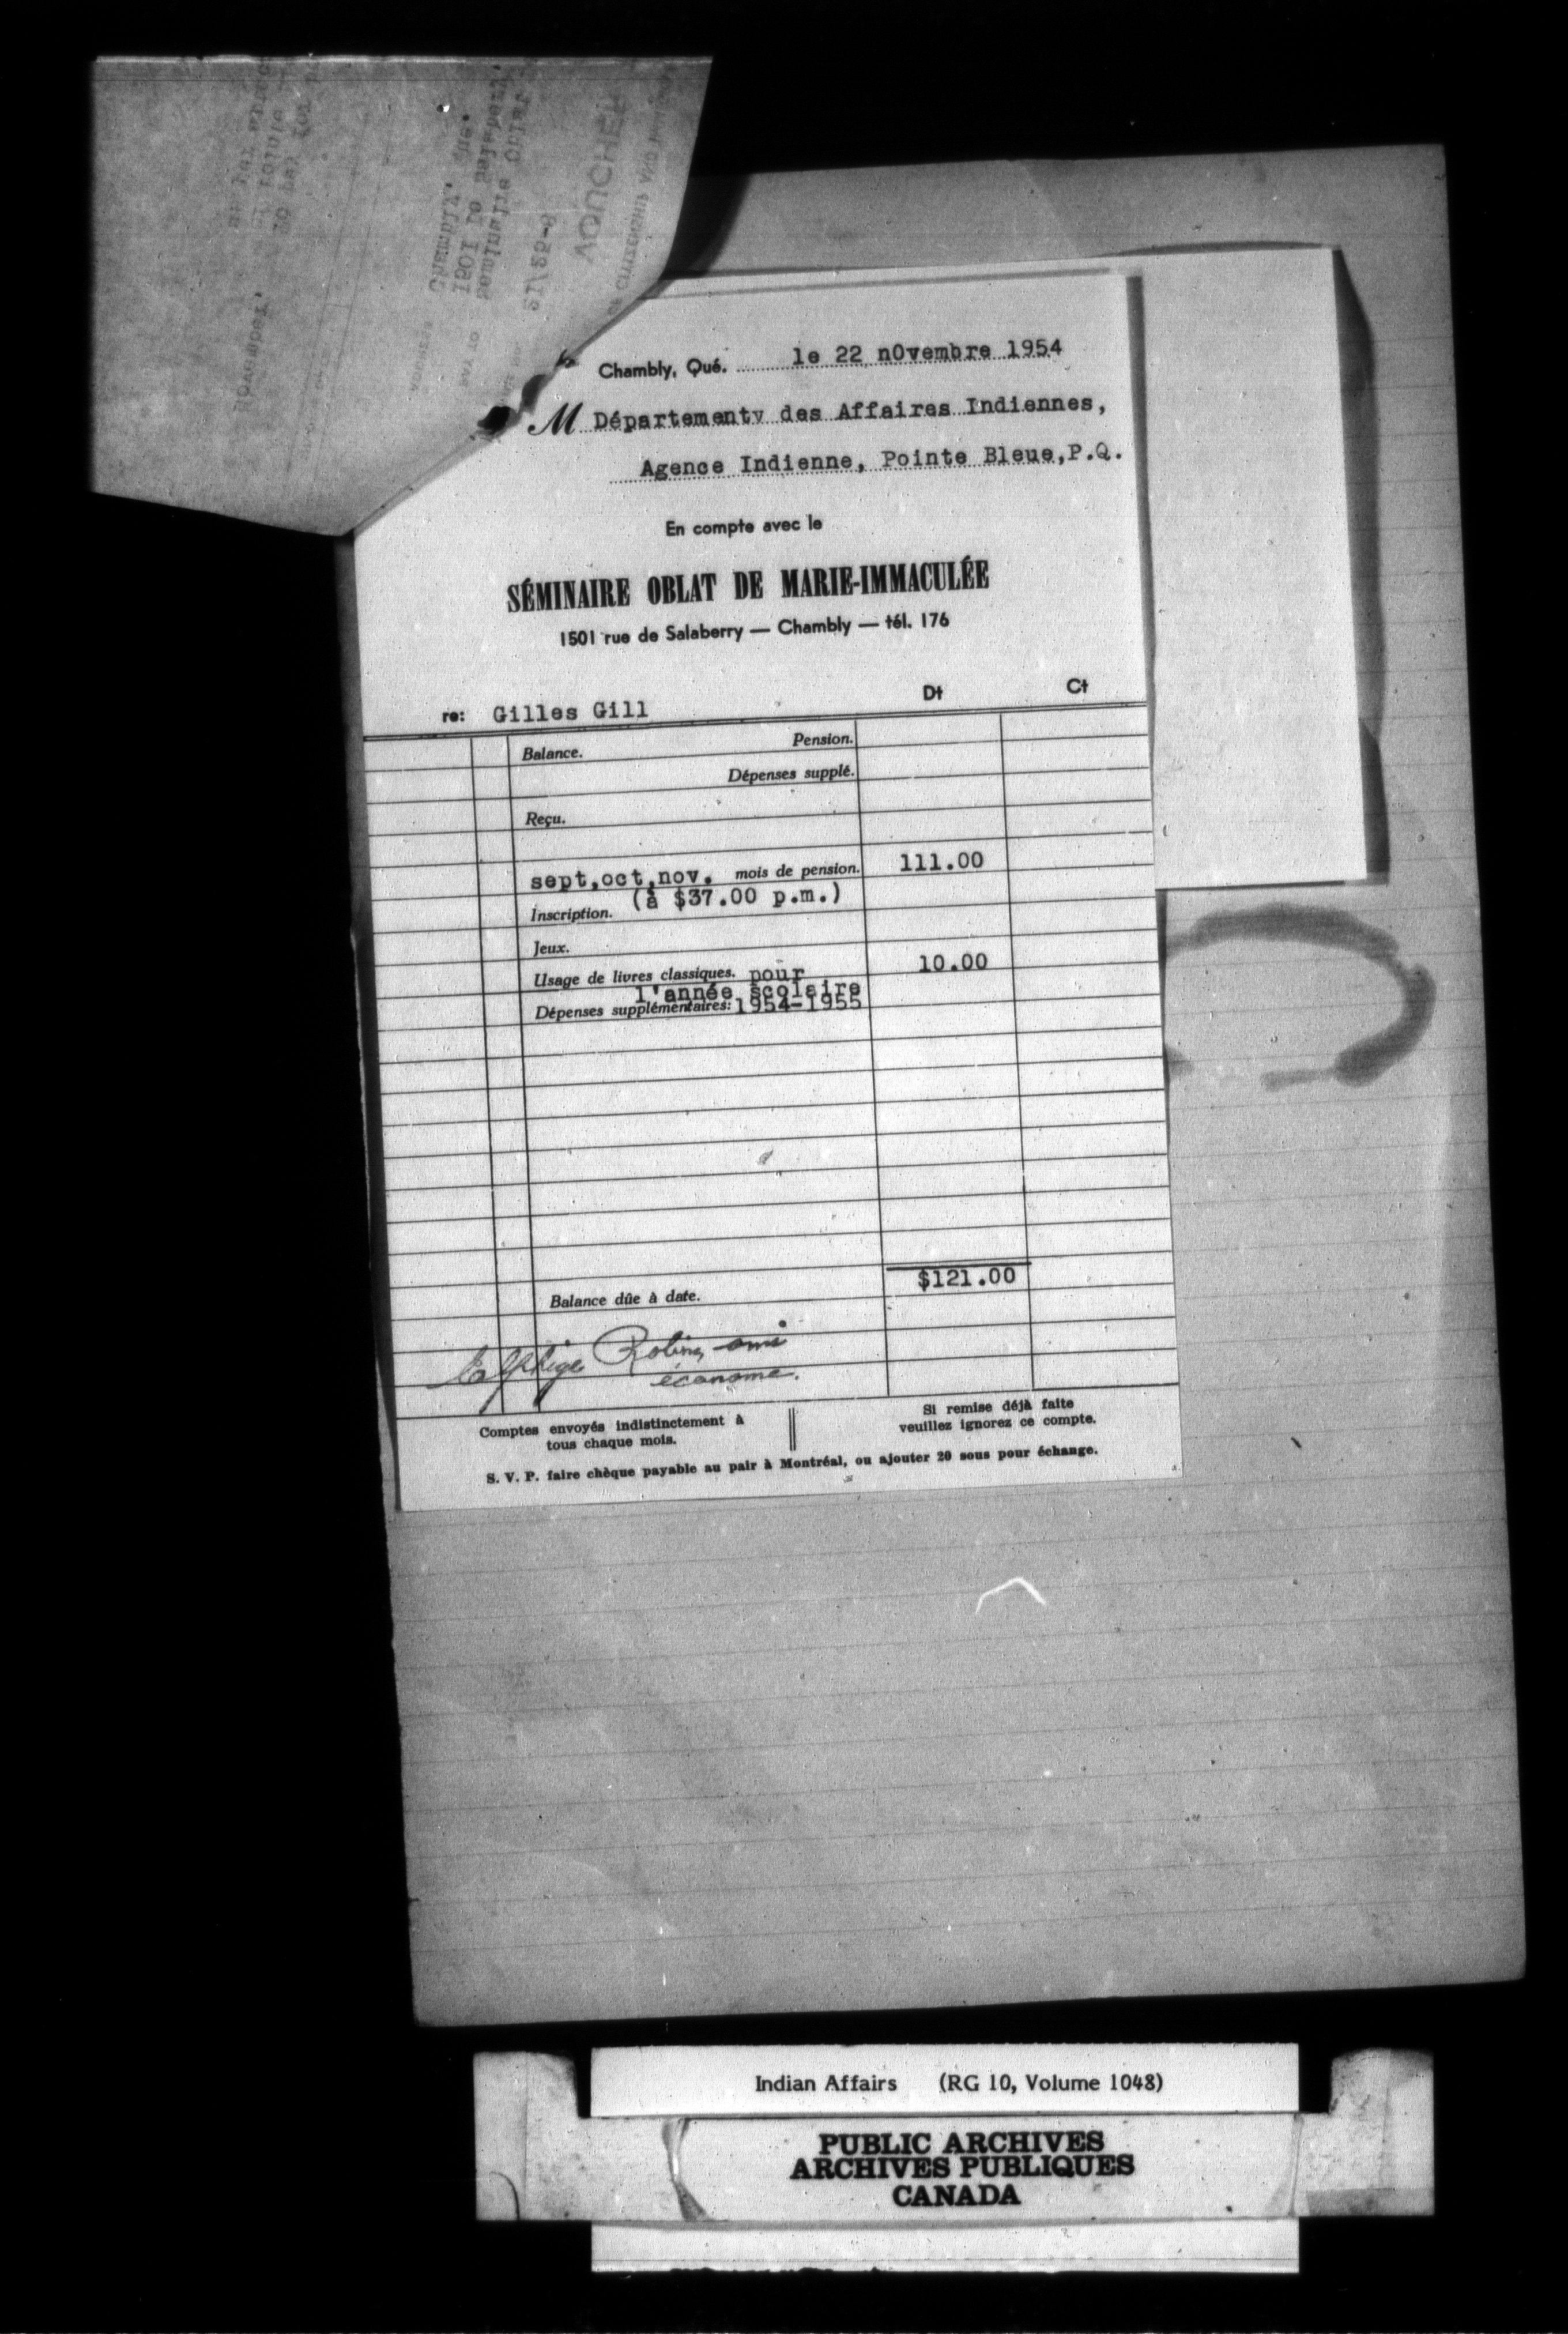 Chambly, Qué. le 22 nOvembre 1954
M Départementv des Affaires Indiennes,
Agence Indienne, Pointe Bleue,P.Q.
En compte avec le
SÉMINAIRE OBLAT DE MARIE-IMMACULÉE
1501 rue de Salaberry — Chambly — tél. 176
Dt Ct
re: Gilles Gill
Balance. Pension.
Dépenses supplé.
Reçu.
sept,oct,nov. mois de pension. 111.00
(à $37.00 p.m.)
Inscription.
Jeux.
Usage de livres classiques. pour 10.00
l'année scolaire
Dépenses supplémentaires: 1954-1955
$121.00
Balance dûe à date.
Robin, omi
économe.
Comptes envoyés indistinctement à
tous chaque mois.
Si remise déjà faite
veuillez ignorez ce compte.
S. V. P. faire chèque payable au pair à Montréal, ou ajouter 20 sous pour échange.
VOUCHER
21/25-8
Séminaire Oblat
1501 de Salaberry
Chambly, Que.
Indian Affairs (RG 10, Volume 1048)
PUBLIC ARCHIVES
ARCHIVES PUBLIQUES
CANADA